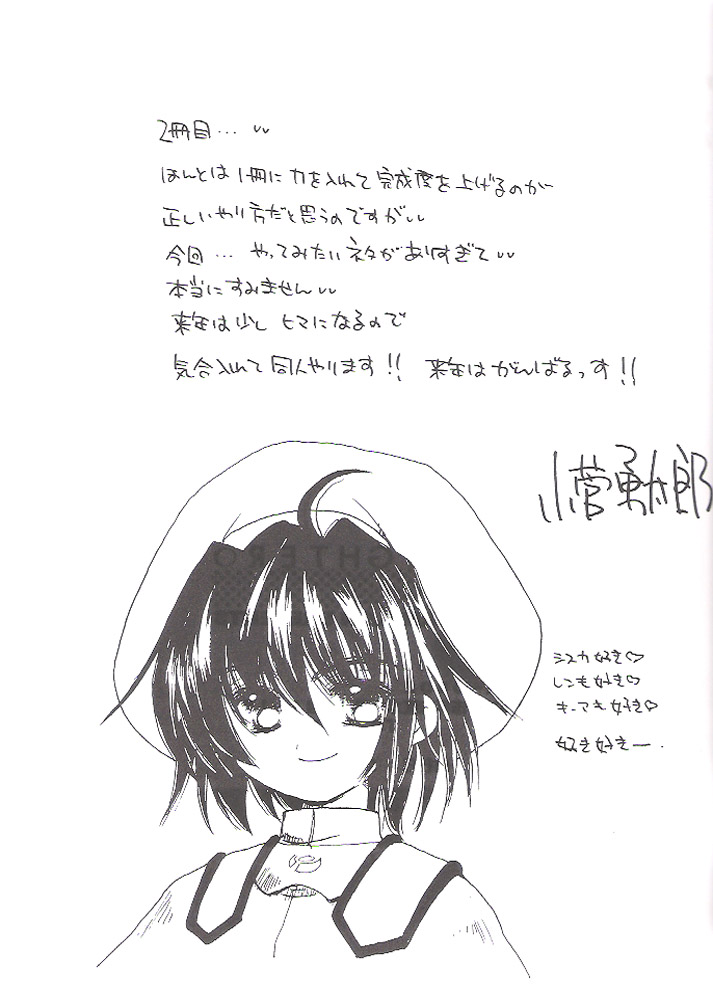 2冊目… ˇˇ
ほんとは1冊に力を入れて完成度を上げるのが
正しいやり方だと思うのですがˇˇ
今回… やってみたいネタがありすぎてˇˇ
本当にすみませんˇˇ
来年は少し ヒマになるので
気合入れて同人やります!! 来年はがんばるっす!!
小菅勇太郎
シスカ好き♡
しんも好き♡
キっても好き♡
好き好きー.